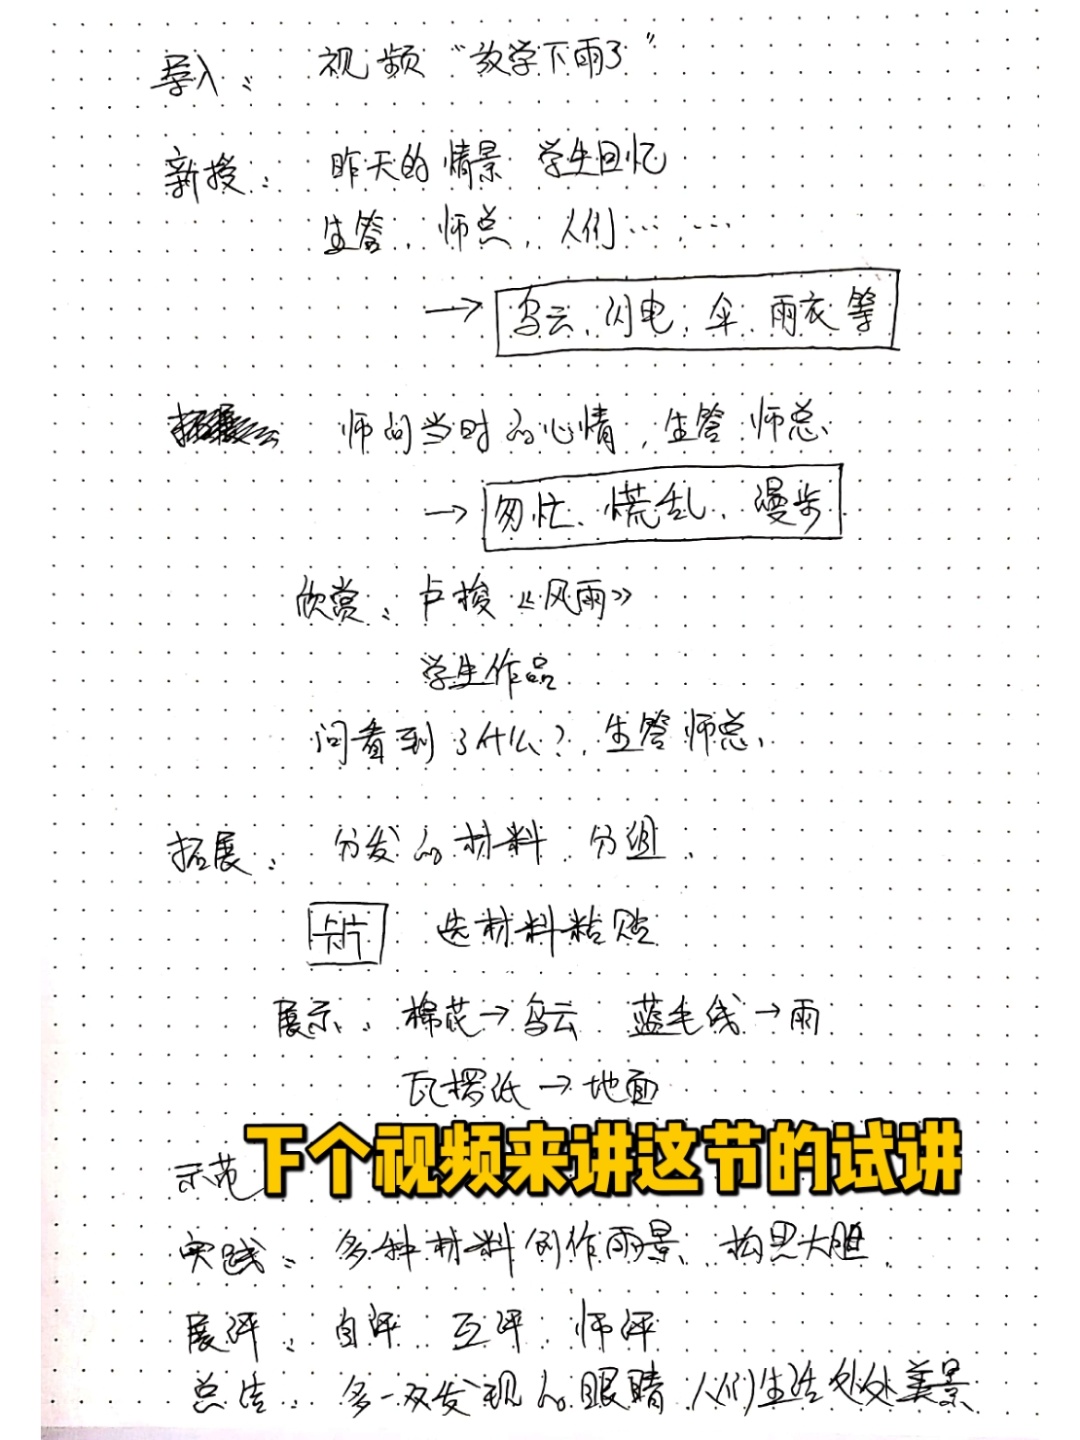 导入： 视频“放学下雨了”
新授： 昨天的情景 学生回忆
生答，师总，人们……
→ 乌云、闪电、伞、雨衣等
拓展： 师问当时的心情，生答 师总、
→ 匆忙、慌乱、漫步
欣赏：卢梭《风雨》
学生作品
问看到了什么？，生答 师总、
拓展： 分发的材料 分组、
卡片 选材料粘贴
展示：棉花→乌云 蓝毛线→雨
瓦楞纸→地面
下个视频来讲这节的试讲
示范
实践： 多种材料创作雨景、构思大胆
展评：自评 互评 师评
总结：多一双发现的眼睛 人们生活处处美景